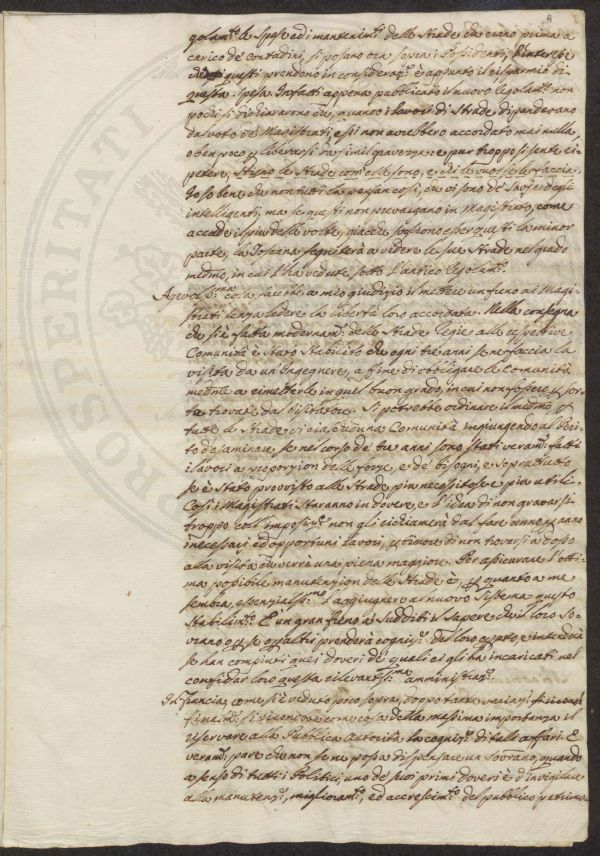 8
golam.to le Spese ed i mantenim.ti delle Strade che erano prima a
carico de' Contadini, si posano ora sopra i Possidenti, l'interesse
che questi prendono in consideraz.e è appunto il risparmio di
questa Spesa. Infatti appena pubblicato il nuovo Regolam.to non
pochi si dichiararono che, quando i lavori di Strade dipenderano
da voto de' Magistrati essi non avrebbero accordato mai nulla,
o ben poco p liberarsi da simil gravezza: e pur troppo si sente ri-
petere, Stieno le Strade come elle sono, e chi le vuole se le faccia.
Io so bene che non tutti la pensan così, che vi sono de' Savi e degli
intelligenti, ma se questi non prevalgano in Magistrato, come
accade il più delle volte, giacchè sogliono esser questi la minor
parte, la Toscana seguiterà a vedere le sue Strade nel grado
medmo, in cui l'ha vedute sotto l'antico Regolam.to
Agevoliss.ma cosa sarebbe a mio giudizio il mettere un freno ai Magi-
strati senza ledere la libertà loro accordata. Nella consegna
che si è fatta modernam.te delle Strade Regie alle respettive
Comunità è stato Stabilito che ogni tre anni se ne faccia la
visita da un Ingegnere, a fine di obbligare le Comunità
medme a rimetterle in quel buon grado, in cui non fossero p sor-
te trovate dal Visitatore. Si potrebbe ordinare il medmo p
tutte le Strade di ciascheduna Comunità ingiungendo al Peri-
to d'esaminare se nel corso de' tre anni sono stati veram.te fatti
i lavori a proporzion delle forze, e de' bisogni, e sopra tutto
se è stato provvisto alle Strade più necessitose e più utili.
Così i Magistrati staranno in dovere, e l'idea di non gravarsi
troppo coll'imposiz.e non gli richiamerà dal fare anno p anno
i necessari ed opportuni lavori, p timore di non trovarsi a dosso
alla visita che verrà una piena maggiore. Per assicurare l'otti-
ma possibile manutenzion delle Strade è, p quanto a me
sembra, essenzialiss.mo l'aggiugnere al nuovo Sistema questo
Stabilim.to È un gran freno ai Sudditi il sapere che il loro So-
vrano o p se o p altri prenderà cogniz.e del loro operato, e intenderà
se han compiuti quei doveri de' quali ei gli ha incaricati nel
confidar loro questa rilevantiss.ma amministraz.e
In Francia, come si è veduto poco sopra, doppo tante variaz.i
finalm.te si riconobbe come cosa della massima importanza il
riservare alla Pubblica Autorità la cogniz.e di tale affari. E
veram.te pare che non se ne possa dispensare un Sovrano, quando
a senso di tutti i Politici, uno de' suoi primi doveri è d'invigilare
alla manutenz.e, miglioram.to, ed accrescim.to del pubblico patrimo-
PROSPERITATI